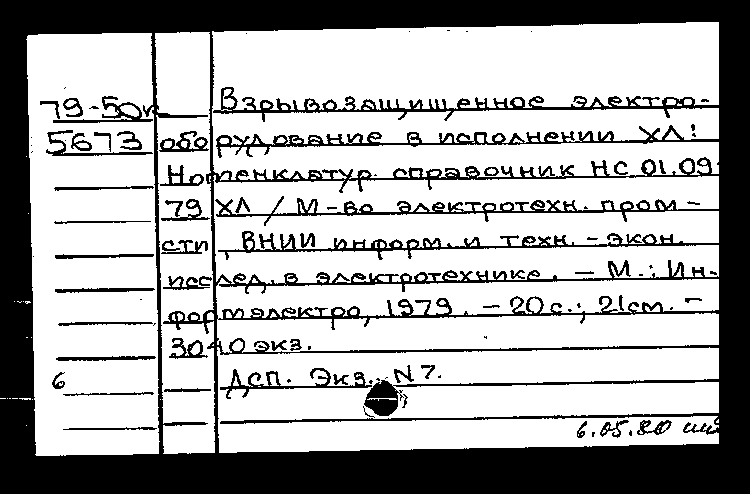 79-50к Взрывозащищенное электро-
5673 оборудование в исполнении ХЛ:
Номенклатур. справочник НС 01.09
79 ХЛ / М-во электротехн. пром-
сти, ВНИИ информ. и техн.-экон.
исслед. в электротехнике. - М.: Ин-
формэлектро, 1979. - 20 с.; 21 см. -
3040 экз.
6 Дсп. Экз. N 7.
6.05.80